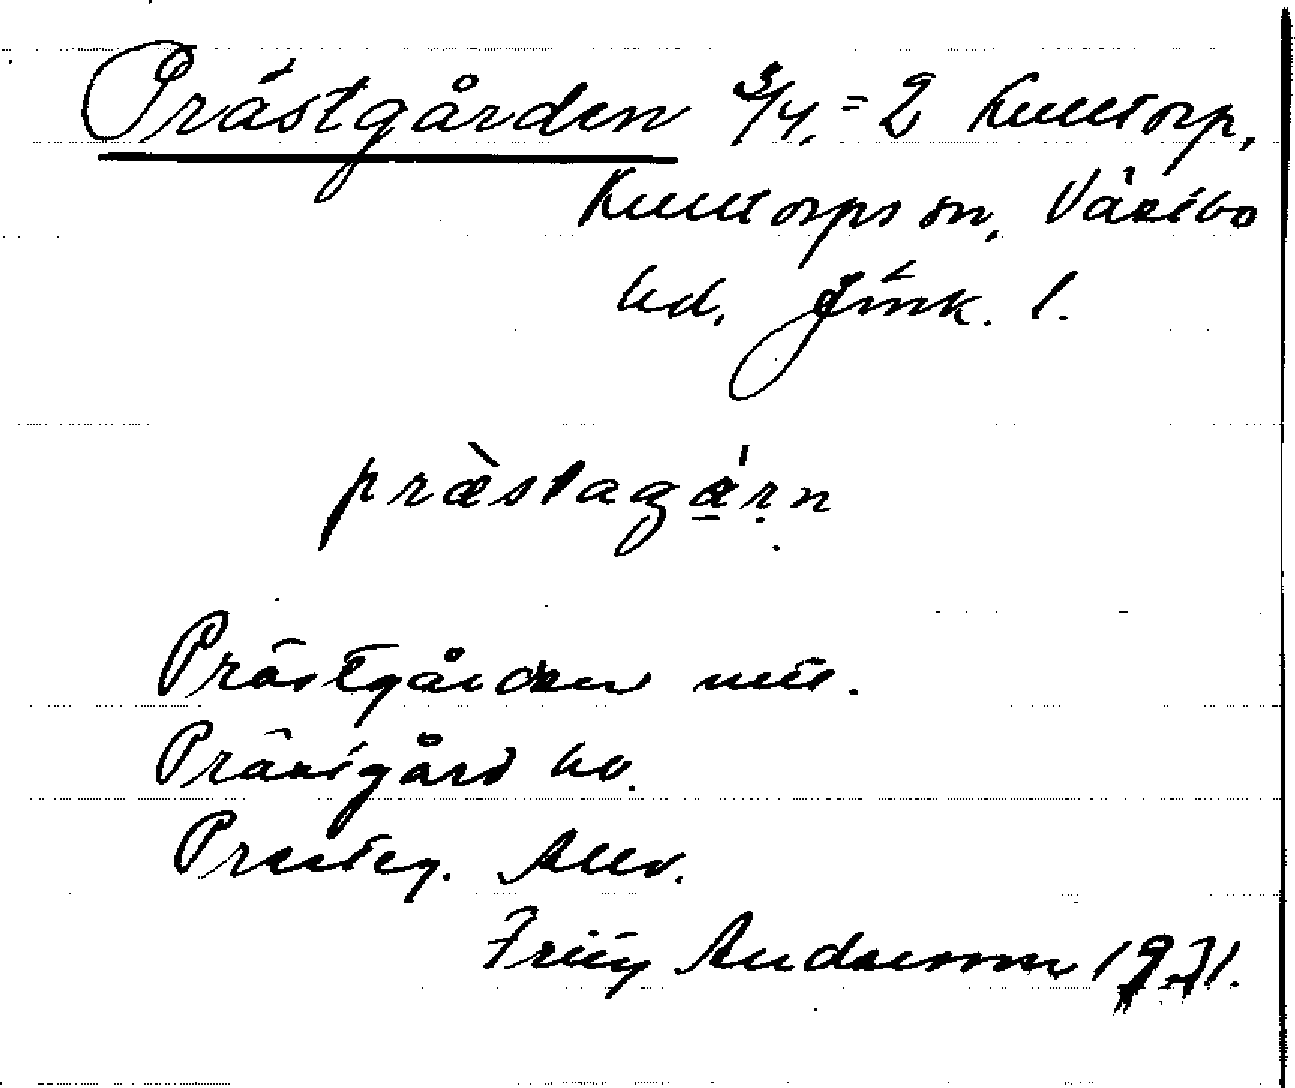 Prästgården 3/4, = 2 Kulltorp,
Kulltorps sn, Västbo
hd. Jönk. l.
præ̀stagá̱ṛṇ
Prästgården
Prästgård
Presteg.
Fritz Andersson 1931.